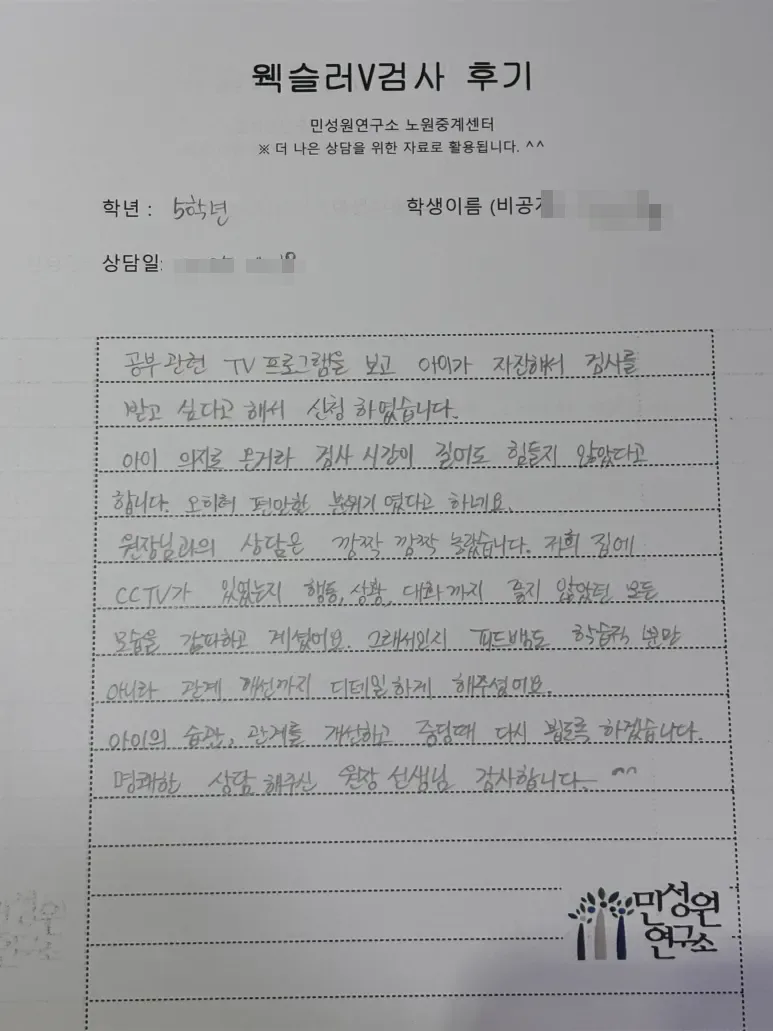 웩슬러V검사 후기
민성원연구소 노원중계센터
※ 더 나은 상담을 위한 자료로 활용됩니다. ^^
학년 : 5학년
학생이름 (비공개
상담일:
공부관련 TV프로그램을 보고 아이가 자진해서 검사를
받고 싶다고 해서 신청하였습니다.
아이 의지로 온거라 검사 시간이 길어도 힘들지 않았다고
합니다. 오히려 편안한 분위기였다고 하네요.
원장님과의 상담은 깜짝 깜짝 놀랐습니다. 저희 집에
CCTV가 있었는지 행동, 상황, 대화까지 흘지 않았던 모든
모습을 감파하고 계셨어요. 그래서인지 피드백도 학습적 분만
아니라 관계 개선까지 디테일하게 해주셨어요.
아이의 습관, 관계를 개선하고 중딩때 다시 뵙도록 하겠습니다.
명쾌한 상담 해주신 원장 선생님 감사합니다. ^^
민성원
연구소